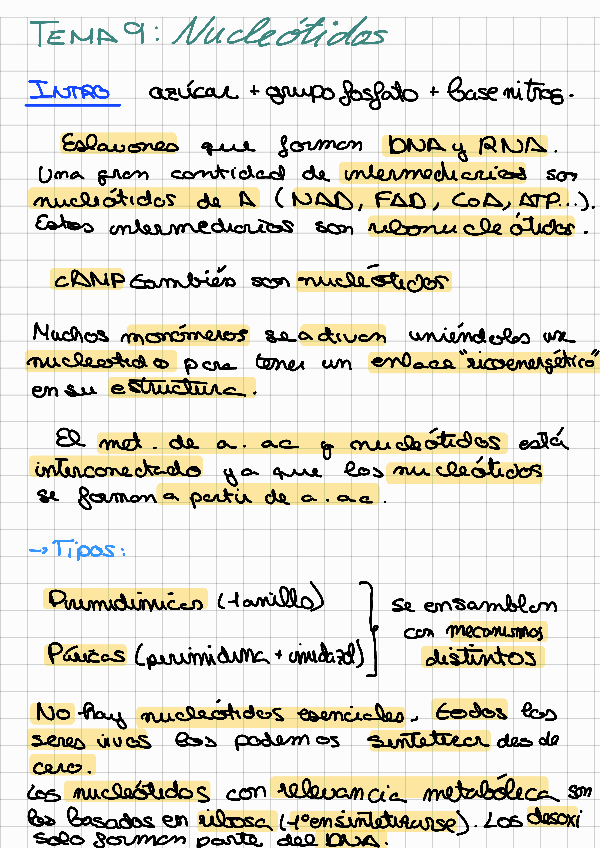 TEMA 9: Nucleótidos
INTRO azúcar + grupo fosfato + base nitrog.
Eslavones que forman DNA y RNA.
Una gran cantidad de intermediarios son
nucleótidos de A (NAD, FAD, CoA, ATP...).
Estos intermediarios son ribonucleótidos.
cAMP también son nucleótidos
Muchos monómeros se activan uniéndoles un
nucleotido para tener un enlace "ricoenergético"
en su estructura.
El met. de a. ac y nucleótidos está
interconectado ya que los nucleótidos
se forman a partir de a. ac.
→ Tipos:
Pirimidínicas (1 anillo)
Púricas (pirimidina + imidazol)
se ensamblan
con mecanismos
distintos
No hay nucleótidos esenciales, todos los
seres vivos los podemos sintetizar desde
cero.
Los nucleótidos con relevancia metabólica son
los basados en ribosa (1º en sintetizarse). Los desoxi
solo forman parte del DNA.